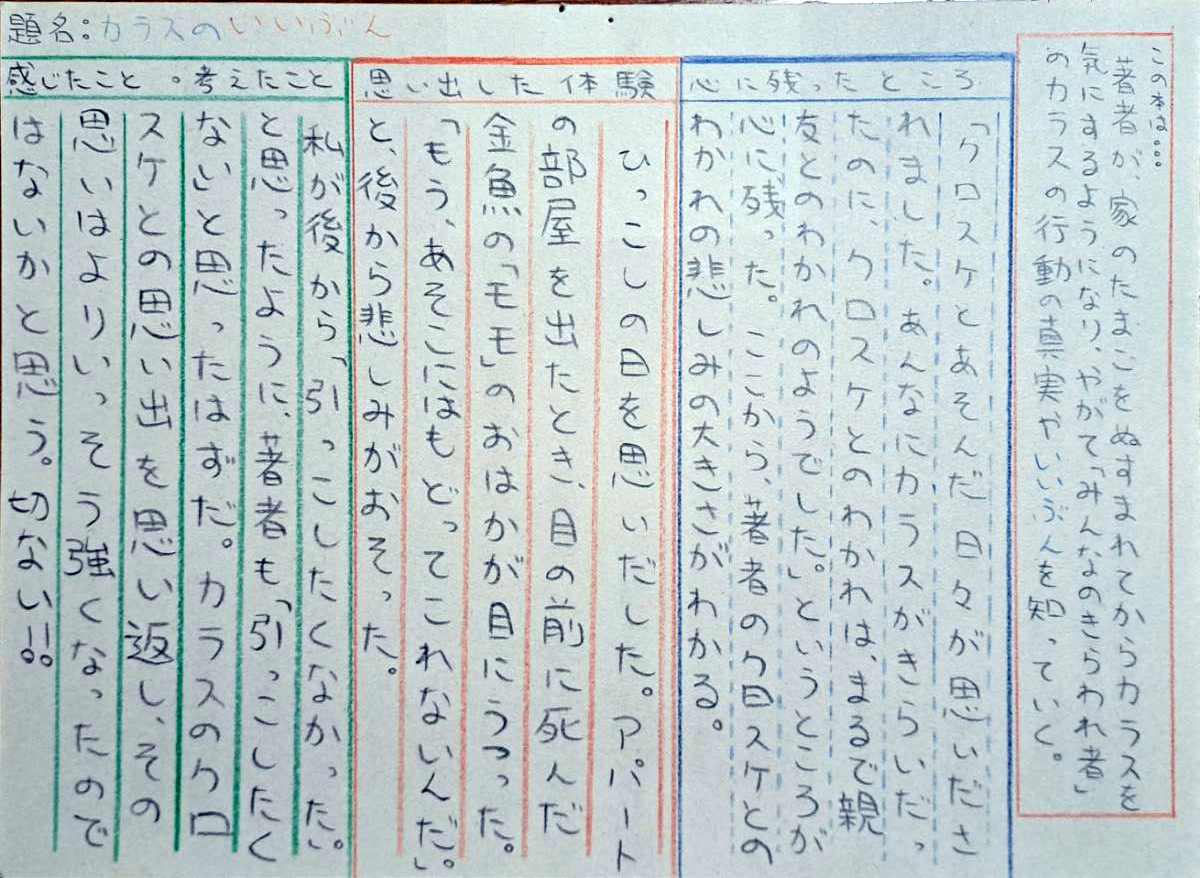 題名:カラスのいいぶん
この本は。。。
著者が、家のたまごをぬすまれてからカラスを
気にするようになり、やがて「みんなのきらわれ者」
のカラスの行動の真実やいいぶんを知っていく。
心に残ったところ
「クロスケとあそんだ日々が思いださ
れました。あんなにカラスがきらいだっ
たのに、クロスケとのわかれは、まるで親
友とのわかれのようでした」。というところが
心に残った。ここから、著者のクロスケとの
わかれの悲しみの大きさがわかる。
思い出した体験
ひっこしの日を思いだした。アパート
の部屋を出たとき、目の前に死んだ
金魚の「モモ」のおはかが目にうつった。
「もう、あそこにはもどってこれないんだ」。
と、後から悲しみがおそった。
感じたこと。考えたこと
私が後から「引っこしたくなかった」。
と思ったように、著者も「引っこしたく
ない」と思ったはずだ。カラスのクロ
スケとの思い出を思い返し、その
思いはよりいっそう強くなったので
はないかと思う。切ない!!。